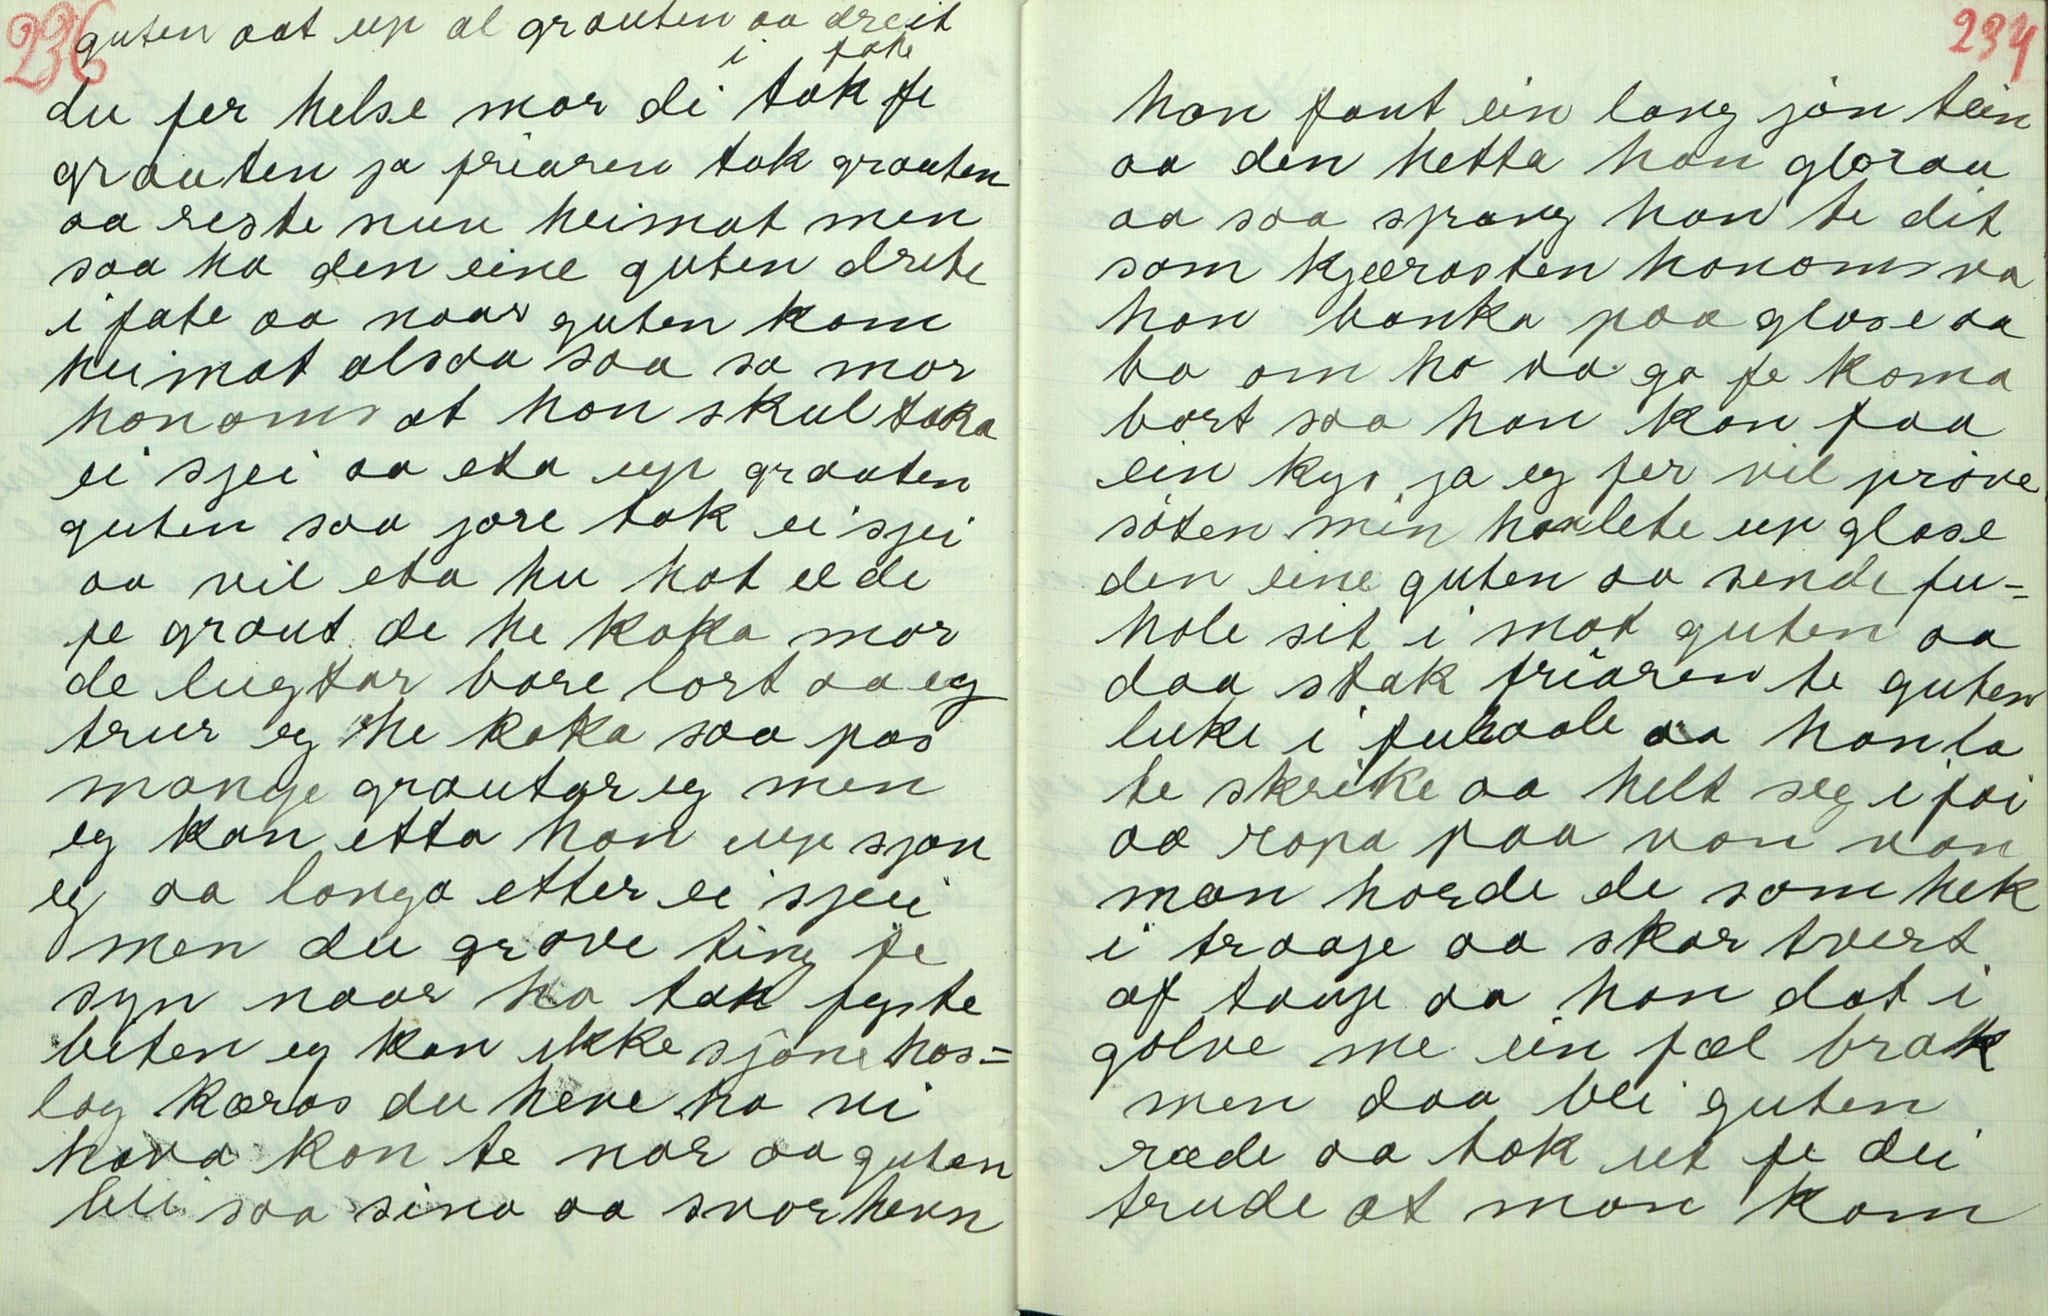 236
guten aat up al grauten aa dreit
i fate
du fer helse mor di tak fe
grauten ja friaren tok grauten
aa reste nuu heimat men
saa ha den eine guten drete
i fate aa naar guten kom
heimat alsaa saa sa mor
honoms at han skul taka
ei sjei aa eta up grauten
guten saa jore tok ei sjei
aa vil eta hu hat el de
fe graut de he koka mor
de lugtar bare lort aa eg
trur eg he koka saa pas
mange grautar eg men
eg kan etta han up sjøn
eg aa langa etter ei sjeii
men du grove ting fe
syn naar ho tok fyste
biten eg kan ikke sjøne hos=
lag kæras du heve ho vi
hava kan te nar aa guten
blii saa sina aa svor hevn
234
han fant ein lang jøn tein
aa den hetta han gloraa
aa saa sprang han te dit
som kjærasten honoms va
han banka paa glase aa
ba om ho va go fe koma
bort saa han kan faa
ein kys ja eg fer vil prøve
søten min han lete up glase
den eine guten aa sende fu=
hole sit i mot guten aa
daa stak friaren te guten
luke i fuhoole aa han la
te skrike aa helt seg i foi
aa ropa paa van van
man horde de som hek
i traage aa skar tvert
af tauge aa han dat i
golve me ein fæl brak
men daa blei guten
ræde aa tok ut fe dei
trude at man kom